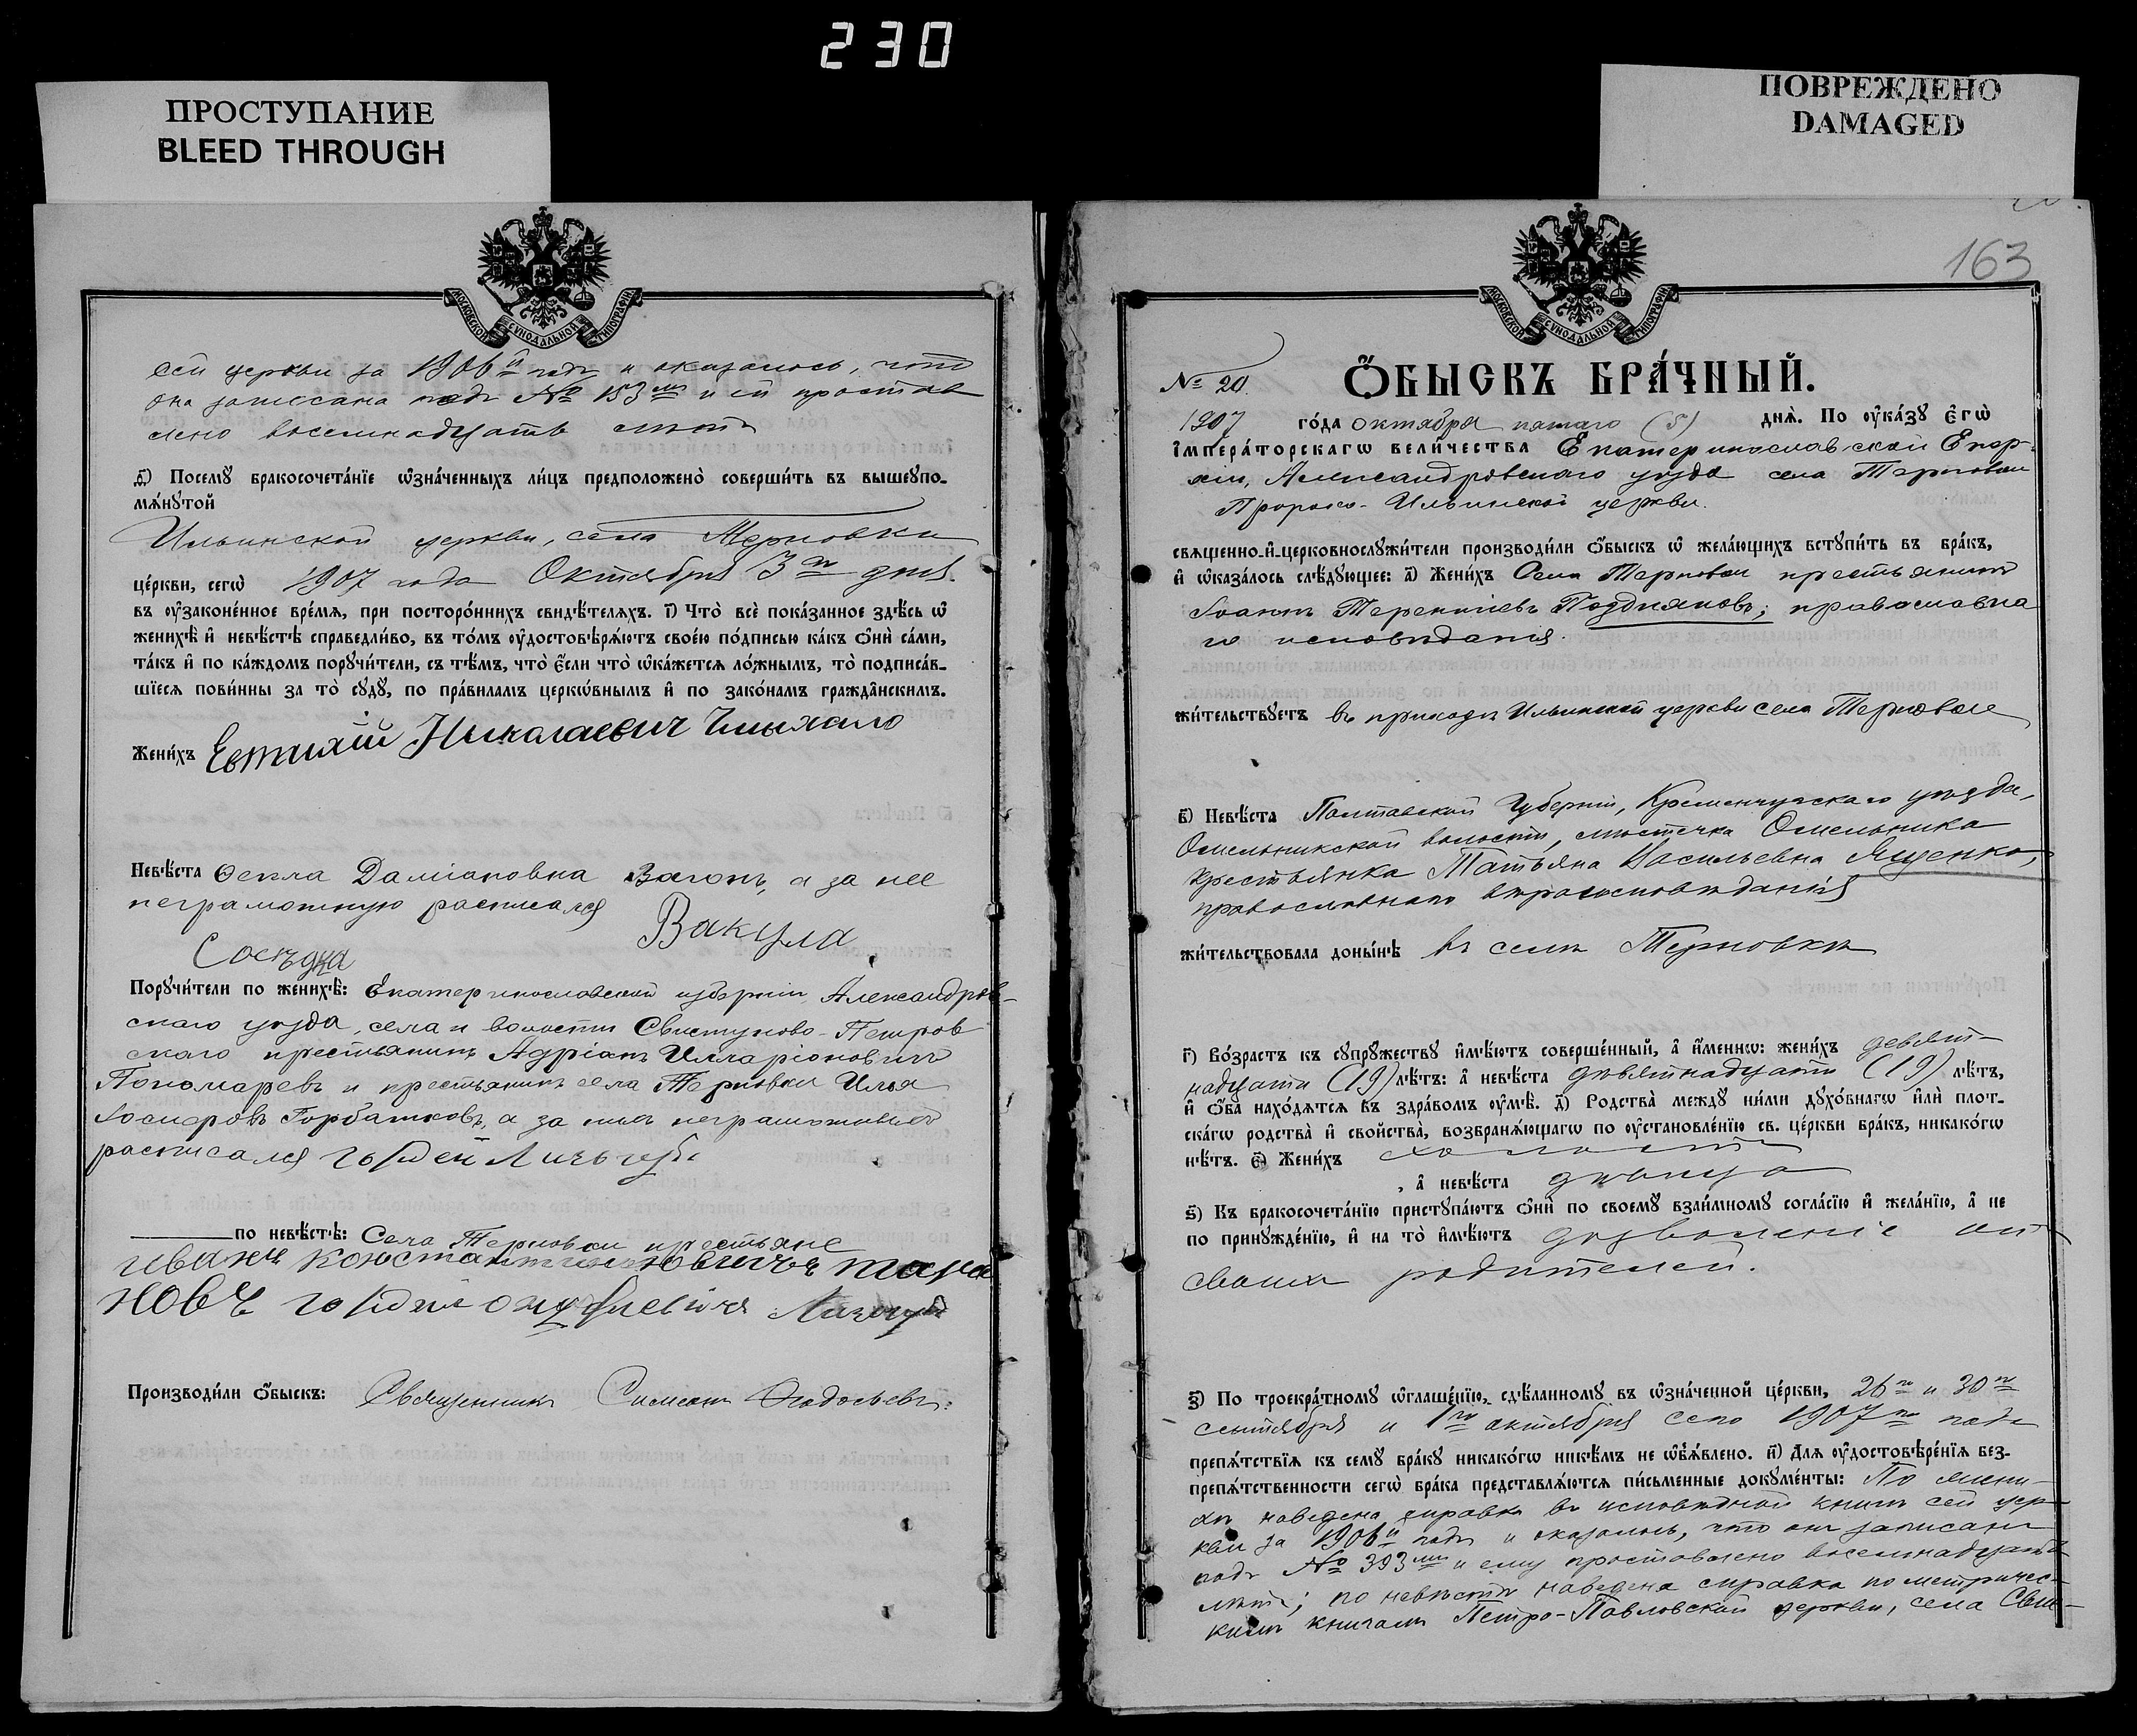 230
ПРОСТУПАНИЕ
BLEED THROUGH
ПОВРЕЖДЕНО
DAMAGED
МОСКОВСКОЙ СѴНОДАЛЬНОЙ ТИПОГРАФІИ
сей церкви за 1906й годъ и оказалось, что
она записана подъ № 153мъ и ей простав
лено восемнадцать лѣтъ
д҃) Посемꙋ бракосочета́нїе ѡ҆зна́ченныхъ ли́цъ предположено̀ соверши́ть въ вышеꙋпо-
мѧ́нꙋтой
Ильинской церкви, села Терновки
це́ркви, сегѡ̀ 1907 года Октября 3го дня.
въ ᲂу҆законе́нное вре́мѧ, при посторо́ннихъ свидѣ́телѧхъ. і҃) Что̀ всѐ пока́занное здѣ́сь ѡ҆
женихѣ̀ и҆ невѣ́стѣ справедли́во, въ то́мъ ᲂу҆достовѣрѧ́ютъ свое́ю по́дписью ка́къ ѻ҆нѝ са́ми,
та́къ и҆ по ка́ждомъ порꙋчи́тели, съ тѣ́мъ, что̀ є҆́сли что̀ ѡ҆ка́жетсѧ ло́жнымъ, то̀ подписа́в-
шїесѧ пови́нны за то̀ сꙋдꙋ̀, по пра́виламъ церкѡ́внымъ и҆ по зако́намъ гражда́нскимъ.
Жени́хъ Евтихій Николаевич Чмыхало
Невѣ́ста Ѳекла Даміановна а за нее
неграмотную расписался Вакула
Сосѣдка
Порꙋчи́тели по женихѣ̀: Екатеринославской губерніи, Александров-
скаго уѣзда, села и волости Свистуново-Петров
скаго крестьянинъ Адріанъ Илларіоновичъ
Пономаревъ и крестьянинъ села Терновки Илья
Горбатковъ, а за нихъ неграмотныхъ
расписался гордей Личъ
по невѣ́стѣ: Села Терновки крестьяне
иванъ константиновичъ тара
новъ гордей
Производи́ли ѻ҆́быскъ: Священникъ Симеонъ Ѳедосьевъ.
163
№ 20.
Ѻ҆́БЫСКЪ БРА́ЧНЫЙ.
1907 го́да октября пятаго (5) днѧ̀. По ᲂу҆ка́зꙋ є҆гѡ̀
і҆мпера́торскагѡ вели́чества Екатеринославской Епар-
хіи, Александровскаго уѣзда села Терновки
Пророко-Ильинской церкви.
свѧще́нно-и҆-церковнослꙋжи́тели производи́ли ѻ҆́быскъ ѡ҆ жела́ющихъ встꙋпи́ть въ бра́къ,
и҆ ѡ҆каза́лось слѣ́дꙋющее: а҃) Жени́хъ Села Терновки крестьянинъ
Іоаннъ Терентіевъ Поздняковъ, православна
го исповѣданія.
жи́тельствꙋетъ въ приходѣ Ильинской церкви села Терновки
в҃) Невѣ́ста Полтавской Губерніи, Кременчугскаго уѣзда,
Омельникской волости, мѣстечка Омельника
крестьянка Татьяна Васильевна Яценко,
православнаго вѣроисповѣданія
жи́тельствовала доны́нѣ въ селѣ Терновкѣ
г҃) Во́зрастъ къ сꙋпрꙋ́жествꙋ и҆мѣ́ютъ соверше́нный, а҆ и҆́меннѡ: жени́хъ девят-
надцати (19) лѣ́тъ: а҆ невѣ́ста девятнадцати (19) лѣ́тъ,
и҆ ѻ҆́ба нахо́дѧтсѧ въ здра́вомъ ᲂу҆мѣ̀. д҃) Родства̀ междꙋ ни́ми дꙋхо́внагѡ и҆лѝ плот-
ска́гѡ родства̀ и҆ свойства̀, возбранѧ́ющагѡ по ᲂу҆становле́нїю св. це́ркви бра́къ, никако́гѡ
нѣ́тъ. є҃) Жени́хъ холостъ
, а҆ невѣ́ста дѣвица
ѕ҃) Къ бракосочета́нїю пристꙋпа́ютъ ѻ҆нѝ по своемꙋ̀ взаи́мномꙋ согла́сїю и҆ жела́нїю, а҆ не
по принꙋжде́нїю, и҆ на то̀ и҆мѣ́ютъ дозволеніе отъ
своихъ родителей.
з҃) По троекра́тномꙋ ѡ҆глаше́нїю, сдѣ́ланномꙋ въ ѡ҆зна́ченной це́ркви, 26го и 30го
сентября и 1го октября сего 1907го года
препѧ́тствїѧ къ семꙋ̀ бра́кꙋ никако́гѡ никѣ́мъ не ѡ҆б̾ѧ́влено. и҃) Длѧ ᲂу҆достовѣре́нїѧ без-
препѧ́тственности сегѡ̀ бра́ка представлѧ́ютсѧ пи́сьменные докꙋме́нты: По жени-
хѣ наведена справка въ исповѣдной книгѣ сей цер-
кви за 1906й годъ и оказалось, что онъ записанъ
подъ № 393мъ и ему проставлено восемнадцать
лѣтъ; по невѣстѣ наведена справка по метричес-
кимъ книгамъ Петро-Павловской церкви, села Сви-